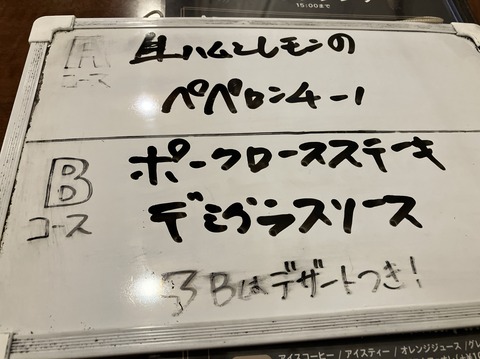 15:00まで
A
コース
生ハムとレモンの
ペペロンチーノ
B
コース
ポークロースステーキ
デミグラスソース
Bはデザートつき!
アイスコーヒー / アイスティー / オレンジジュース / グレ